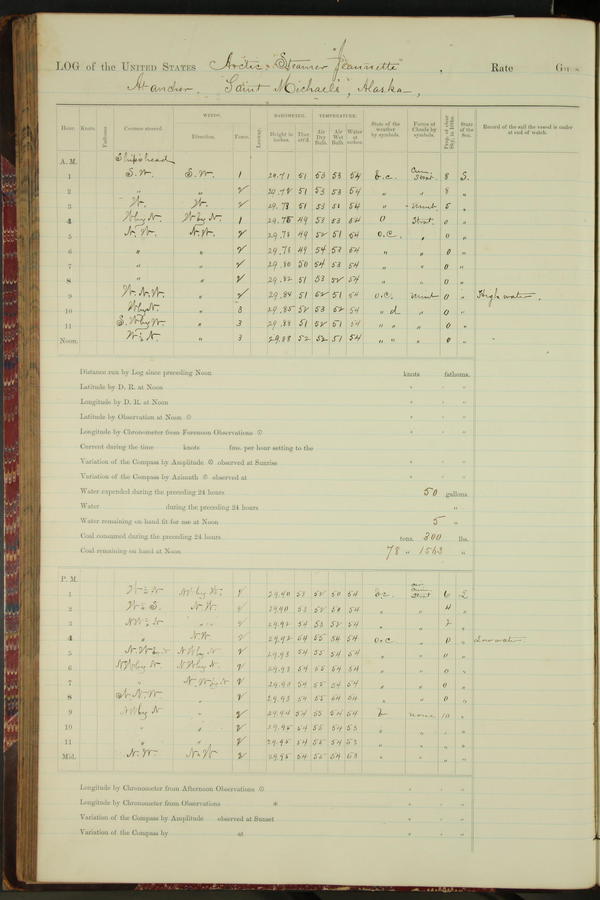 LOG of the UNITED STATES Arctic Steamer "Jeannette", Rate
At anchor. Saint Michaels, Alaska,
Hour. Knots. Fathoms. Courses steered. WINDS. Direction. Force. Leeway. BAROMETER. Height in inches. Ther. att'd. TEMPERATURE. Air Dry Bulb. Air Wet Bulb. Water at surface. State of the weather by symbols. Forms of Clouds by symbols. Prop. of clear Sky, in 10ths. State of the Sea. Record of the sail the vessel is under at end of watch.
A. M. Ship's head
1 S.W. S.W. 1 29.71 51 53 53 54 b.c. Cum. Strat. 8 S.
2 " " 2 29.78 51 53 53 54 " " 8 "
3 W. W. 2 29.73 51 53 53 54 " " 5 "
4 W by N. W by N. 1 29.75 49 53 53 54 O Strat. 0 "
5 N.W. N.W. 2 29.78 49 52 51 54 o.c. " 0 "
6 " " 2 29.78 49 54 53 54 " " 0 "
7 " " 2 29.80 50 54 53 54 " " 0 "
8 " " 2 29.82 51 53 52 54 " " 0 "
9 W.N.W. " 2 29.84 51 52 51 54 o.c. 0 " High water.
10 W by N. " 3 29.85 52 53 52 54 " d " 0 "
11 " 3 29.88 51 52 51 54 " " " 0 "
Noon. " 3 29.88 52 52 51 54 " " " 0 "
Distance run by Log since preceding Noon knots fathoms.
Latitude by D. R. at Noon ° ' "
Longitude by D. R. at Noon ° ' "
Latitude by Observation at Noon ☉ ° ' "
Longitude by Chronometer from Forenoon Observations ☉ ° ' "
Current during the time knots fms. per hour setting to the
Variation of the Compass by Amplitude ☉ observed at Sunrise ° ' "
Variation of the Compass by Azimuth ☉ observed at ° ' "
Water expended during the preceding 24 hours 50 gallons.
Water during the preceding 24 hours "
Water remaining on hand fit for use at Noon 5 "
Coal consumed during the preceding 24 hours tons. 300 lbs.
Coal remaining on hand at Noon 78 " 1563 "
P. M.
1 2 29.90 53 52 50 54 b.c. 6
2 N.W. 2 29.90 53 52 50 54 " " 4 "
3 " 2 29.92 54 53 52 54 " " 2 "
4 " N.W. 2 29.92 54 55 54 54 o.c. " 0 " Low water.
5 N.W by N N W by N. 2 29.93 54 55 54 54 " " 0 "
6 N W by N. N W by N. 2 29.93 54 55 54 54 " " 0 "
7 " N.W by N 2 29.93 54 55 54 54 " " 0 "
8 N.N.W. " 2 29.93 54 55 54 54 " " 0 "
9 N W by N " 2 29.94 54 55 54 54 none 10 "
10 " " 2 29.95 54 55 54 53 " " " "
11 " " 2 29.95 54 55 54 53 " " " "
Mid. N.W. N.W. 2 29.95 54 55 54 53 " " " "
Longitude by Chronometer from Afternoon Observations ☉ ° ' "
Longitude by Chronometer from Observations * ° ' "
Variation of the Compass by Amplitude observed at Sunset ° ' "
Variation of the Compass by at ° ' "